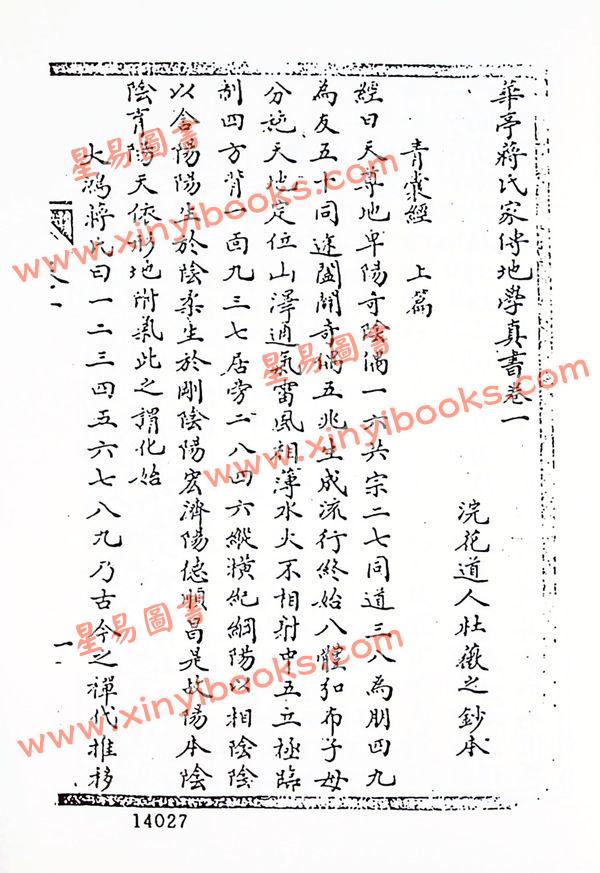 華亭蔣氏家傳地學真書卷一
浣花道人杜薇之鈔本
青囊經 上篇
經曰天尊地卑陽奇陰偶一六共宗二七同道三八為朋四九
為友五十同途闔闢奇偶五兆生成流行終始八體弘布子母
分施天地定位山澤通氣雷風相薄水火不相射中五立極臨
制四方背一面九三七居旁二八四六縱橫紀綱陽以相陰陰
以含陽陽生於陰柔生於剛陰陽宏濟陽德順昌是故陽本陰
陰育陽天依形地附氣此之謂化始
大鴻蔣氏曰一二三四五六七八九乃古今之禪代推移
一
星易圖書
www.xinyibooks.com
星易圖書
www.xinyibooks.com
星易圖書
www.xinyibooks.com
14027